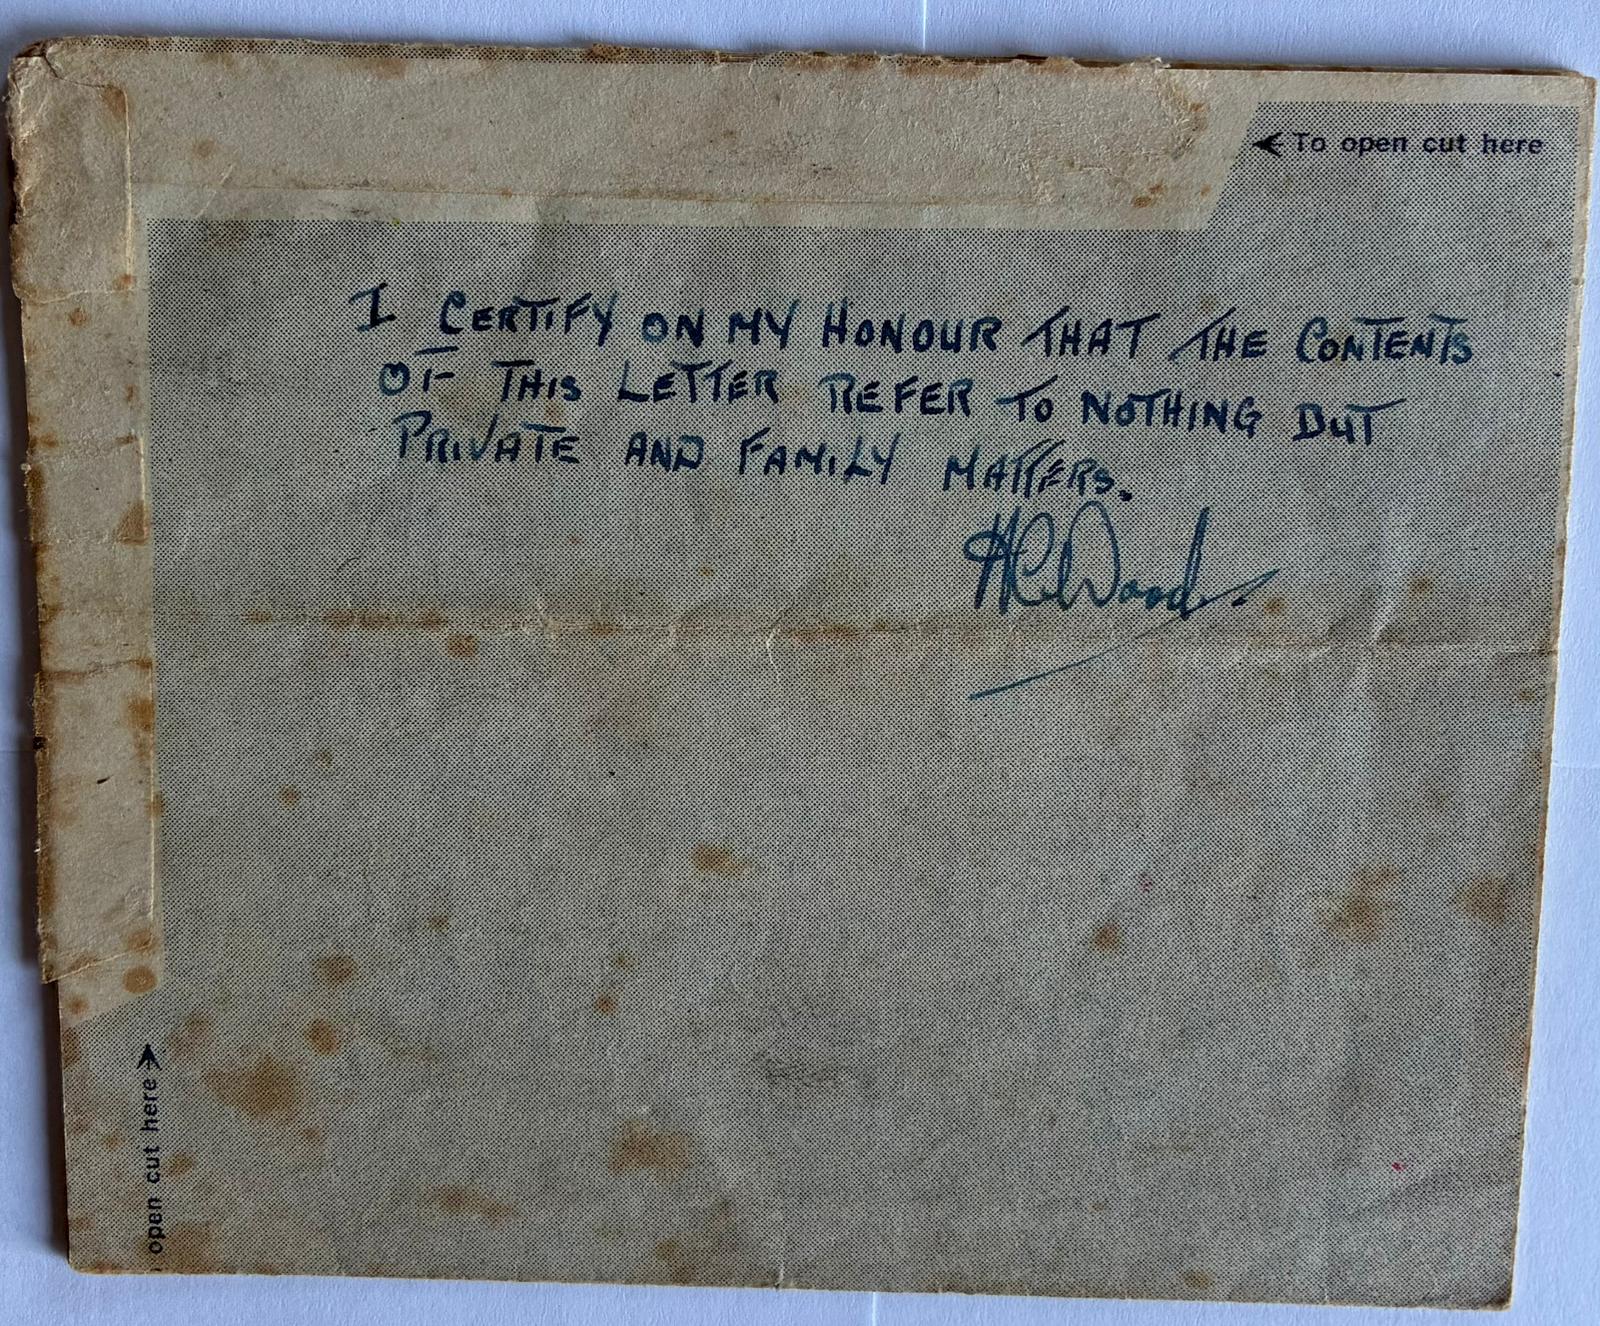 To open cut here
I CERTIFY ON MY HONOUR THAT THE CONTENTS
OF THIS LETTER REFER TO NOTHING BUT
PRIVATE AND FAMILY MATTERS.
HCWood.
open cut here